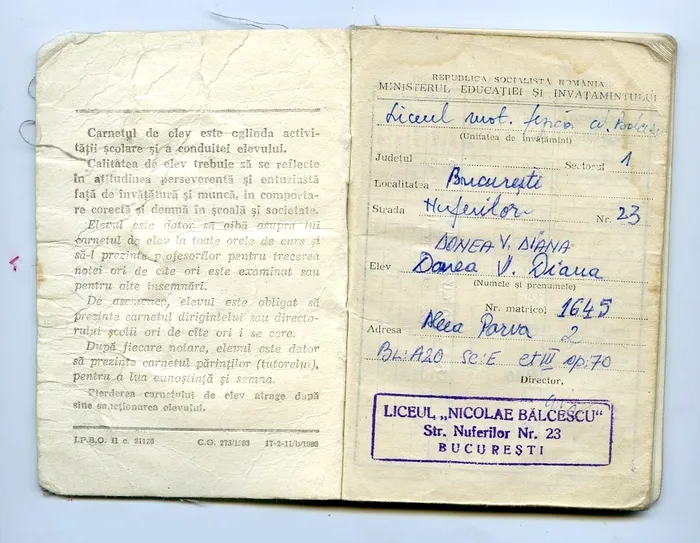 Carnetul de elev este oglinda activi-
tății școlare și a conduitei elevului.
Calitatea de elev trebuie să se reflecte
în atitudinea perseverentă și entuziastă
față de învățătură și muncă, în comporta-
rea corectă și demnă în școală și societate.
Elevul este dator să aibă asupra lui
carnetul de elev la toate orele de curs și
să-l prezinte profesorilor pentru trecerea
notei ori de cîte ori este examinat sau
pentru alte însemnări.
De asemenea, elevul este obligat să
prezinte carnetul dirigintelui sau directo-
rului școlii ori de cîte ori i se cere.
După fiecare notare, elevul este dator
să prezinte carnetul părinților (tutorelui),
pentru a lua cunoștință și semna.
Pierderea carnetului de elev atrage după
sine sancționarea elevului.
I.P.B.O. II c. C.G. 273/1983 17-2-11/b/1983
REPUBLICA SOCIALISTĂ ROMÂNIA
MINISTERUL EDUCAȚIEI ȘI ÎNVĂȚĂMÎNTULUI
Liceul mat. fizică
(Unitatea de învățămînt)
Județul Sectorul 1
Localitatea București
Strada Nuferilor Nr. 23
DONEA V. DIANA
Elev Donea V. Diana
(Numele și prenumele)
Nr. matricol 1645
Adresa Aleea Parva 2
BL: A20 SC: E et III ap: 70
Director,
LICEUL „NICOLAE BĂLCESCU"
Str. Nuferilor Nr. 23
BUCUREȘTI